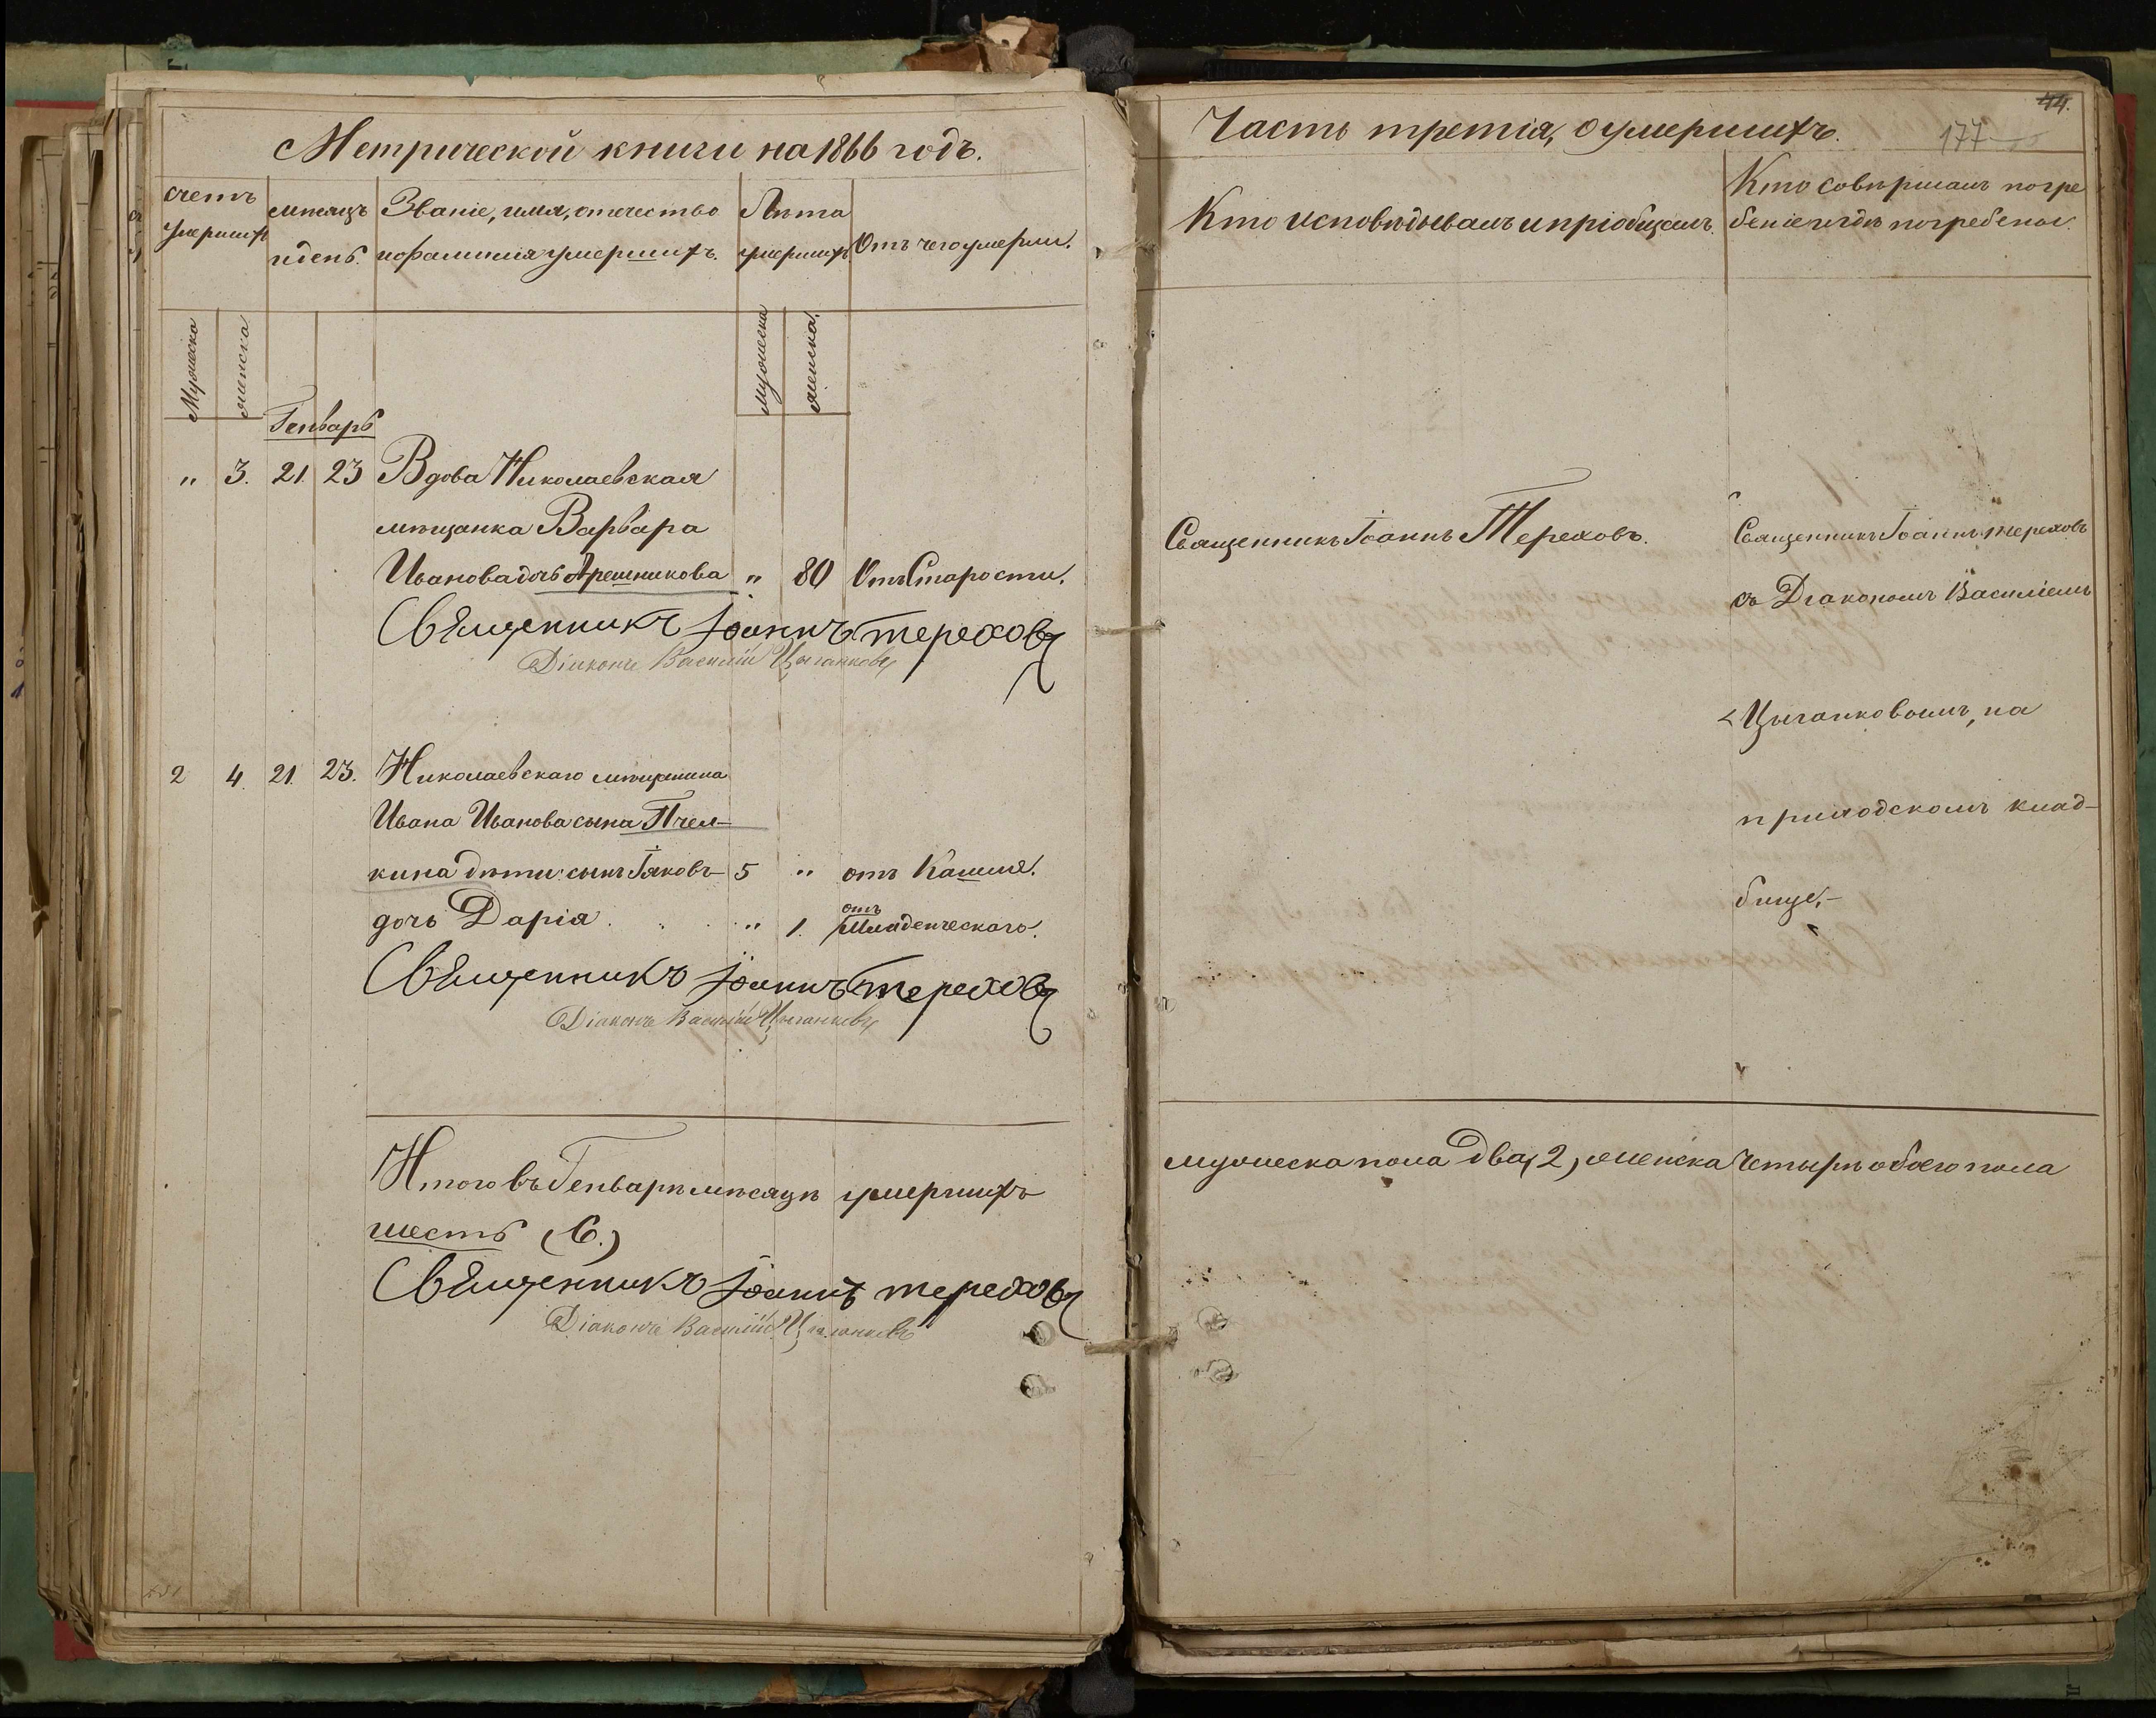 Метрической книги на 1866 годъ.
счетъ умершихъ
мѣсяцъ и день.
Званіе, имя, отчество
и фамилія умершихъ.
Лѣта
умершихъ
Отъ чего умерли.
Мужеска
женска
мужеска
женска.
Генварь
" 3. 21. 23 Вдова Николаевская
мѣщанка Варвара
Иванова дочь Арешникова " 80 Отъ Старости.
Священникъ Іоаннъ Тереховъ
Діаконъ Василій Цыганковъ
2 4. 21. 23. Николаевскаго мѣщанина
Ивана Иванова сына Пчел-
кина дѣти: сынъ Іаковъ 5 " отъ Кашля.
дочь Дарія . . . " 1. отъ Младенческаго.
Священникъ Іоаннъ Тереховъ
Діаконъ Василій Цыганковъ
Итого въ Генварѣ мѣсяцѣ умершихъ
шесть (6.)
Священникъ Іоаннъ Тереховъ
Діаконъ Василій Цыганковъ
44.
177
Часть третія, о умершихъ.
Кто исповѣдывалъ и пріобщалъ.
Кто совершалъ погре
беніе и гдѣ погребены.
Священникъ Іоаннъ Тереховъ.
Священникъ Іоаннъ Тереховъ
съ Діакономъ Василіемъ
Цыганковымъ, на
приходскомъ клад-
бище,-
мужеска пола два, 2, женска четырѣ обоего пола